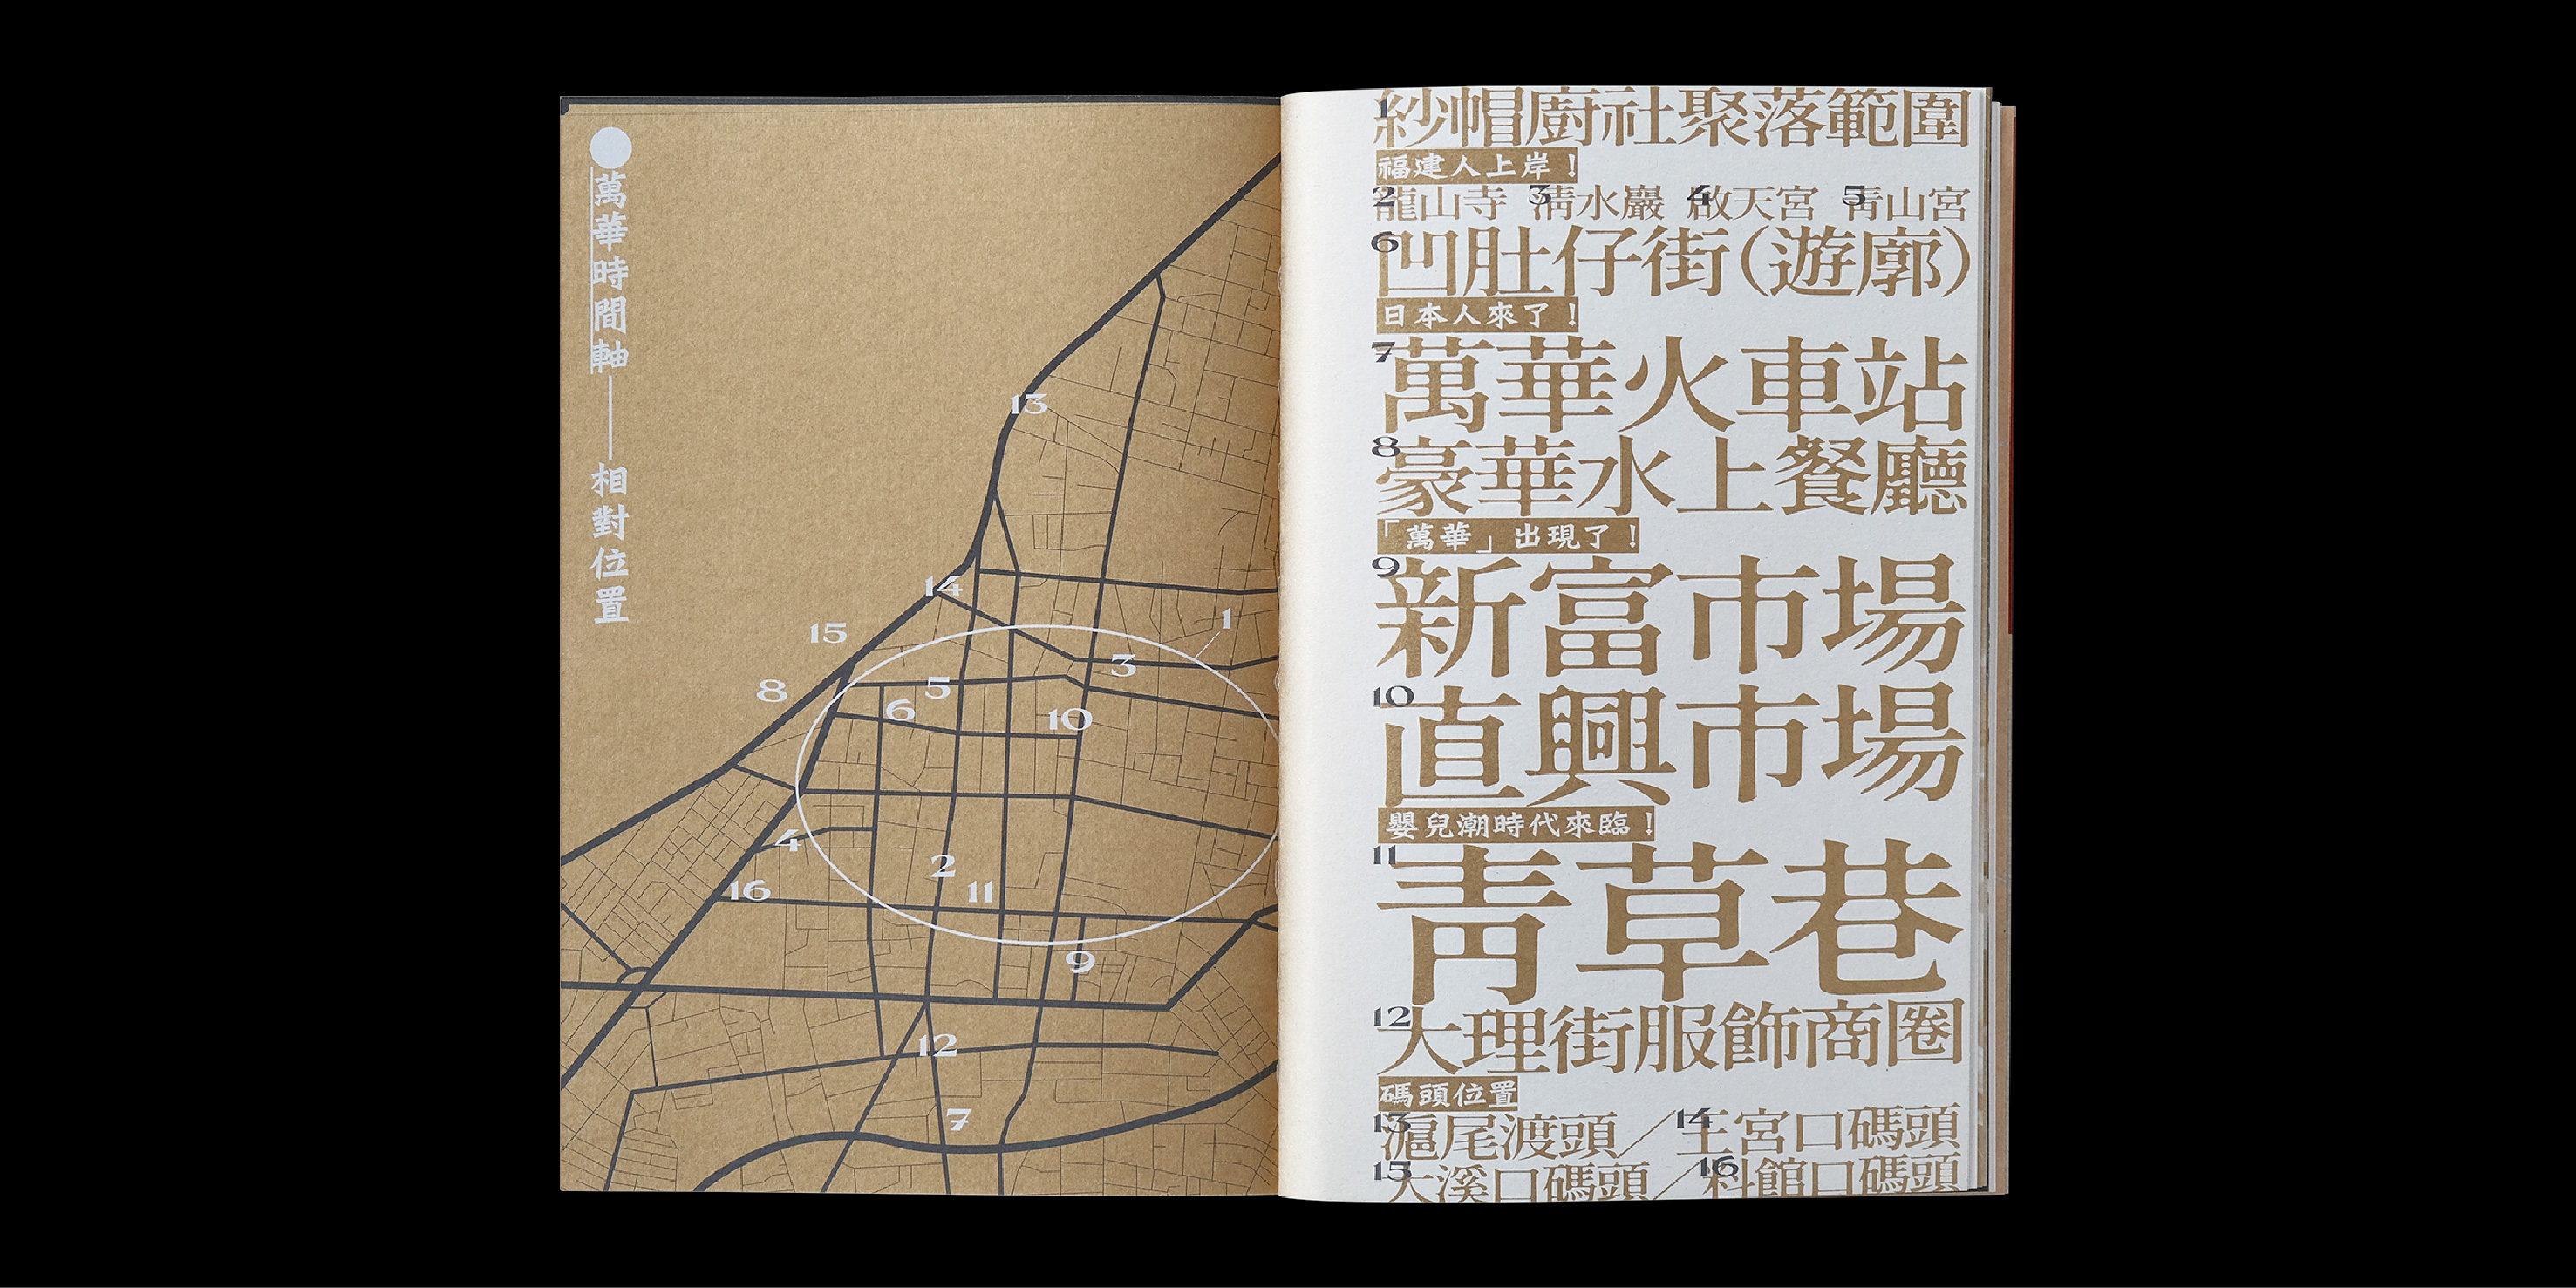 萬華時間軸——相對位置
13
14
15
1
3
8
5
6
10
4
2
16
11
9
12
7
1紗帽廚社聚落範圍
福建人上岸！
2龍山寺 3清水巖 4啟天宮 5青山宮
6凹肚仔街（遊廓）
日本人來了！
7萬華火車站
8豪華水上餐廳
「萬華」出現了！
9新富市場
10直興市場
嬰兒潮時代來臨！
11青草巷
12大理街服飾商圈
碼頭位置
13滬尾渡頭／14王宮口碼頭
15大溪口碼頭／16料館口碼頭